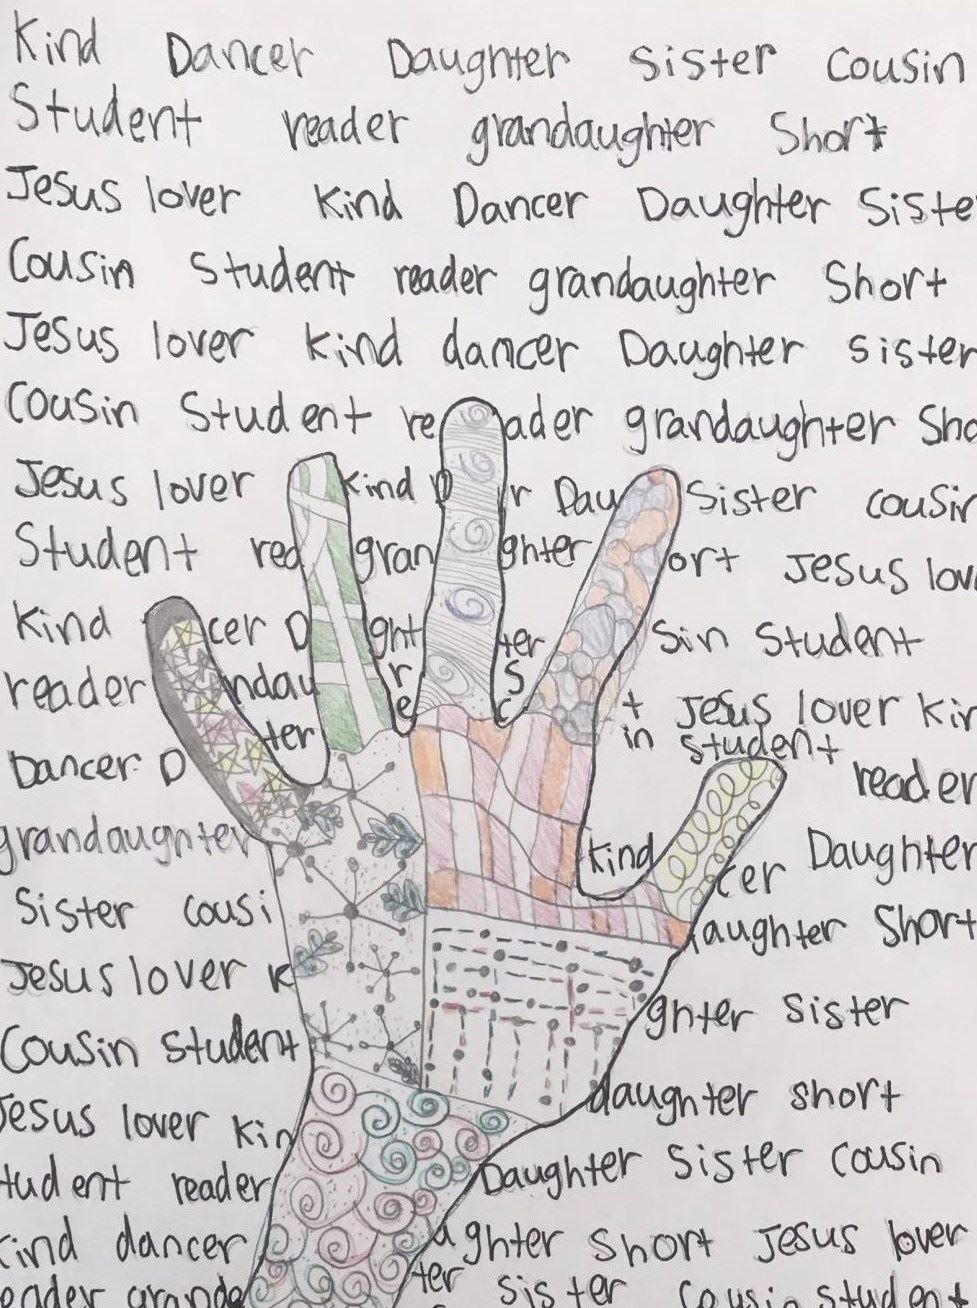 Kind Dancer Daughter Sister Cousin
Student reader grandaughter Short
Jesus lover Kind Dancer Daughter Siste
Cousin Student reader grandaughter Short
Jesus lover kind dancer Daughter sister
Cousin Student re ader grandaughter Sho
Jesus lover kind D r Dau Sister cousin
Student rea gran ghter ort Jesus lov
Kind cer D ght ter Sin Student
reader ndau r S t Jesus lover Kin
ter e c in student
Dancer D reader
grandaughter kind cer Daughter
Sister cousi daughter Short
Jesus lover K ghter sister
Cousin student daughter short
Jesus lover kin Daughter Sister Cousin
tudent reader
kind dancer aughter short Jesus lover
eader grande ter sister Cousin student